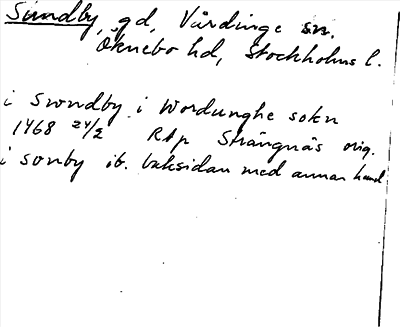 Sundby, gd, Vårdinge sn.
Öknebo hd, Stockholms l.
i Swndby i Wordunghe sokn
1468 24/2 RAp Strängnäs orig.
i sonby ib. baksidan med annan hand